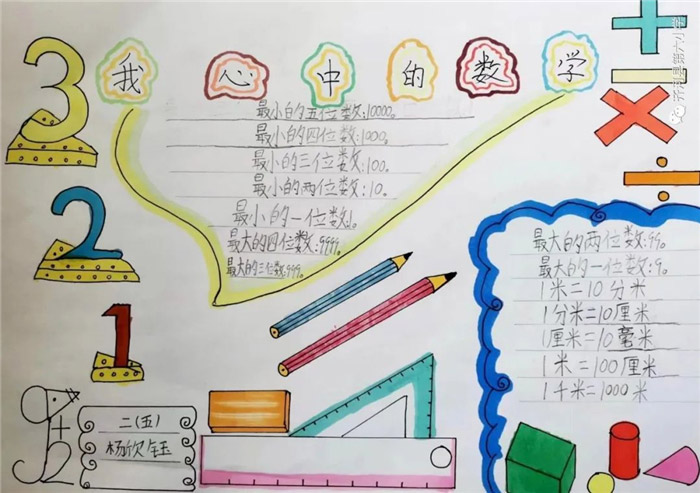 我心中的数学
最小的五位数:10000。
最小的四位数:1000。
最小的三位数:100。
最小的两位数:10。
最小的一位数:1。
最大的四位数:9999。
最大的三位数:999。
3
2
1
+
-
×
÷
最大的两位数:99。
最大的一位数:9。
1米=10分米
1分米=10厘米
1厘米=10毫米
1米=100厘米
1千米=1000米
二(五)
杨欣钰